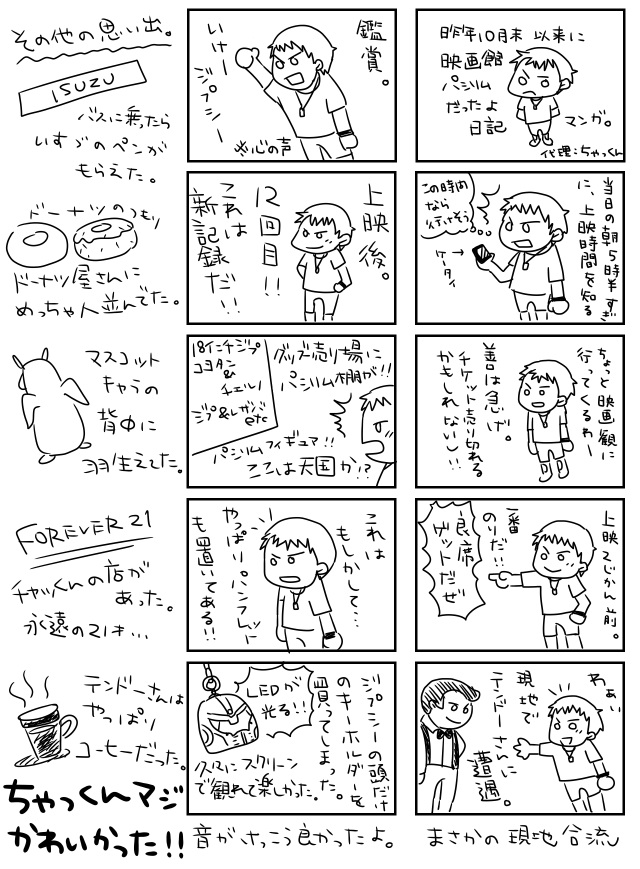 昨年10月末以来に
映画館
パシリム
だったよ
日記
マンガ。
代理:ちゃっくん
当日の朝5時半すぎ
に、上映時間を知る
この時間
なら
行けそう!
ケータイ→
ちょっと映画観に
行ってくるわー
善は急げ。
チケット売り切れる
かもしれないし!!
上映2じかん前。
一番
のりだ!!
良席
ゲットだぜ
わぁい
現地で
テンドーさんに
遭遇。
まさかの現地合流
鑑賞。
いけー
ジプシー
※心の声
上映後。
12回目!!
これは
新記録だ!!
グッズ売り場に
パシリム棚が!!
18インチジプ
コヨタン
&
チェルノ
ジプ&レガシ
etc
パシリムフィギュア!!
ここは天国か!?
これは
もしかして…
やっぱりパンフレット
も置いてある!!
ジプシーの頭だけ
のキーホルダーを
買ってしまった。
LEDが
光る!!
久々にスクリーン
で観れて楽しかった。
音がけっこう良かったよ。
その他の思い出。
ISUZU
バスに乗ったら
いすゞのペンが
もらえた。
ドーナツのつもり
ドーナツ屋さんに
めっちゃ人並んでた。
マスコット
キャラの
背中に
羽生えてた。
FOREVER21
チャックんの店が
あった。
永遠の21才…
テンドーさんは
やっぱり
コーヒーだった。
ちゃっくんマジ
かわいかった!!